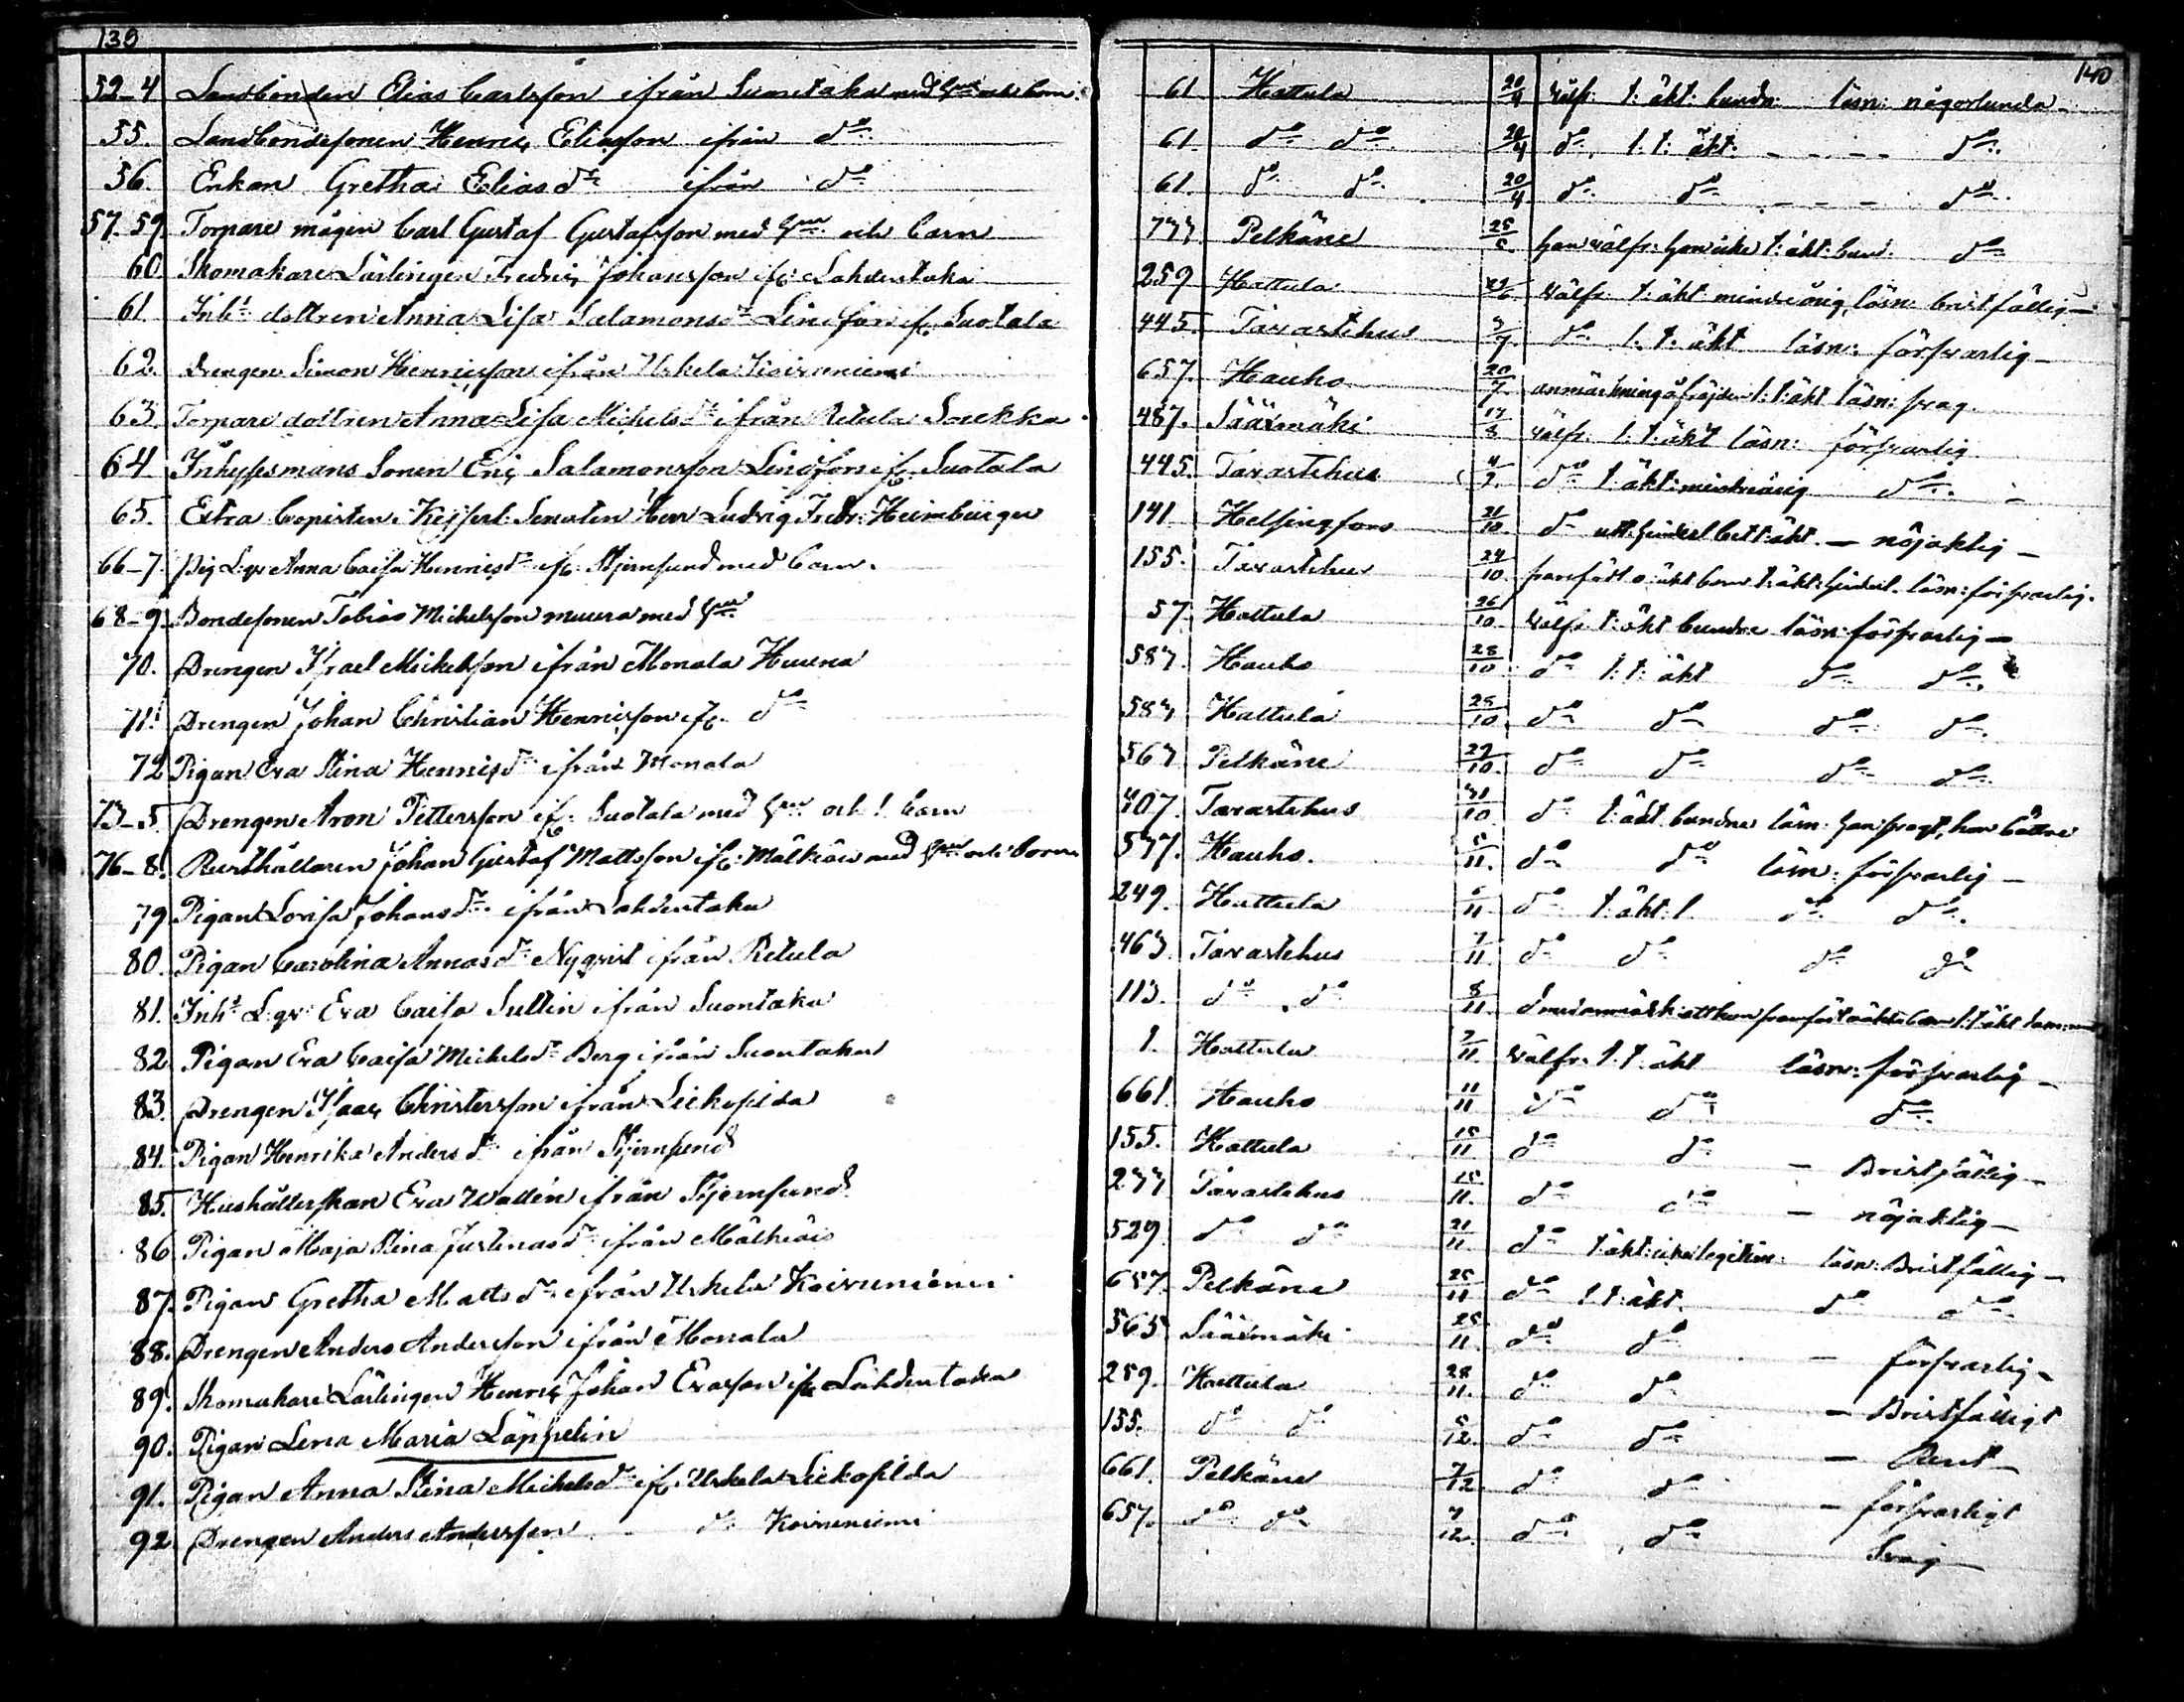 139
52-4 Landbonden Elias Carlsson ifrån Suontaka med Hu och barn
55. Landbondesonen Henric Eliasson ifrån do
56. Enkan Gretha Eliasdr ifrån do
57. 59. Torpare mågen Carl Gustaf Gustafsson med Hu och Barn
60. Skomakare Lärlingen Fredric Johansson ifr: Lahdentaka
61. Inhs dottren Anna Lisa Salamonsdr Lindfors ifr. Suotala
62. Drengen Simon Henricsson ifrån Uskela Koivuniemi
63. Torpare dottren Anna Lisa Michelsdr ifrån Retula
64 Inhyssmans Sonen Eric Salamonsson Lindfors ifr. Suotala
65. Extra Copisten i Kejserl: Senaten Herr Ludvig Fredr: Heimbürger
66-7. Pig L:qv Anna Caisa Henricsdr ifr. Stjernsund med Barn.
68-9. Bondesonen Tobias Michelsson med Hu
70. Drengen Israel Michelsson ifrån Monala
71. Drengen Johan Christian Henricsson ifr. do
72 Pigan Eva Stina Henricsdr ifrån Monala
73-5. Drengen Aron Pettersson ifr. Suotala med Hu och 1 barn
76-8. Rusthållaren Johan Gustaf Mattsson ifr: Mälkiäis med Hu och barn
79 Pigan Lovisa Johansdr ifrån Lahdentaka
80. Pigan Carolina Annasdr Nyqvist ifrån Retula
81. Inhs L:qv: Eva Caisa Sultin ifrån Suontaka
82. Pigan Eva Caisa Michelsdr Berg ifrån Suontaka
83. Drengen Isaac Christersson ifrån Liekosilda
84. Pigan Henrika Andersdr ifrån Stjernsund
85. Hushållerskan Eva Wallén ifrån Stjernsund
86 Pigan Maja Stina Justinasdr ifrån Mälkiäis
87. Pigan Gretha Mattsdr ifrån Uskela Koivuniemi
88. Drengen Anders Andersson ifrån Monala
89. Skomakare Lärlingen Henric Johan Erasson ifr Lahdentaka
90. Pigan Lena Maria Läppelin
91. Pigan Anna Stina Michelsdr ifr. Uskela Liekosilda
92 Drengen Anders Andersson do Koivuniemi
140
61 Hattula 20/4 Välfr: t: äkt: bundn: läsn: någorlunda
61. do do 20/4 do l: t: äkt: - - - do
61. do do 20/4 do do - - - do
777 Pelkäne 25/5 han välfr: hon icke t: äkt: bund. do
259 Hattula Välfr: t: äkt: minderårig, läsn: bristfällig
445. Tavastehus 3/7 do l. t. äkt läsn: försvarlig
657. Hauho 20/7 l: t: äkt läsn: svag
487. Sääxmäki 17/8 Välfr. l: t: äkt läsn: försvarlig
445. Tavastehus 4/9. do t: äkt: minderårig do
141 Helsingfors 21/10 do äkt. nöjaktig
155. Tavastehus 24/10 framfödt o: äkt barn t: äkt: hindersl. läsn: försvarlig.
57 Hattula 26/10 Välfr t: äkt bundne läsn: försvarlig
587. Hauho 28/10 do l: t: äkt do do
587 Hattula 28/10 do do do do
567 Pelkäne 29/10. do do do do
407. Tavastehus 31/10 do t: äkt bundne läsn: han svagt, hon bättre
577. Hauho. 5/11. do do läsn: försvarlig
249. Hattula 6/11 do t: äkt: l. do do
463 Tavastehus 7/11 do do do do
113. do do 8/11. do med anmärk: att hon framfödt oäkta barn l: t: äkt
1. Hattula 9/11. Välfr. l. t: äkt läsn: försvarlig
661. Hauho 11/11 do do do
155. Hattula 15/11 do do - Bristfällig
277 Tavastehus 15/11. do do - nöjaktig
529. do do 21/11. do t: äkt: icke legitim: läsn: Bristfällig
657. Pelkäne 25/11 do l. t: äkt. do do
565. Sääxmäki 25/11 do do - försvarlig
259. Hattula 28/11. do do - Bristfälligt
155. do do 5/12. do do - Rent
661. Pelkäne 7/12 do do - försvarligt
657. do do 7/12. do do Svag